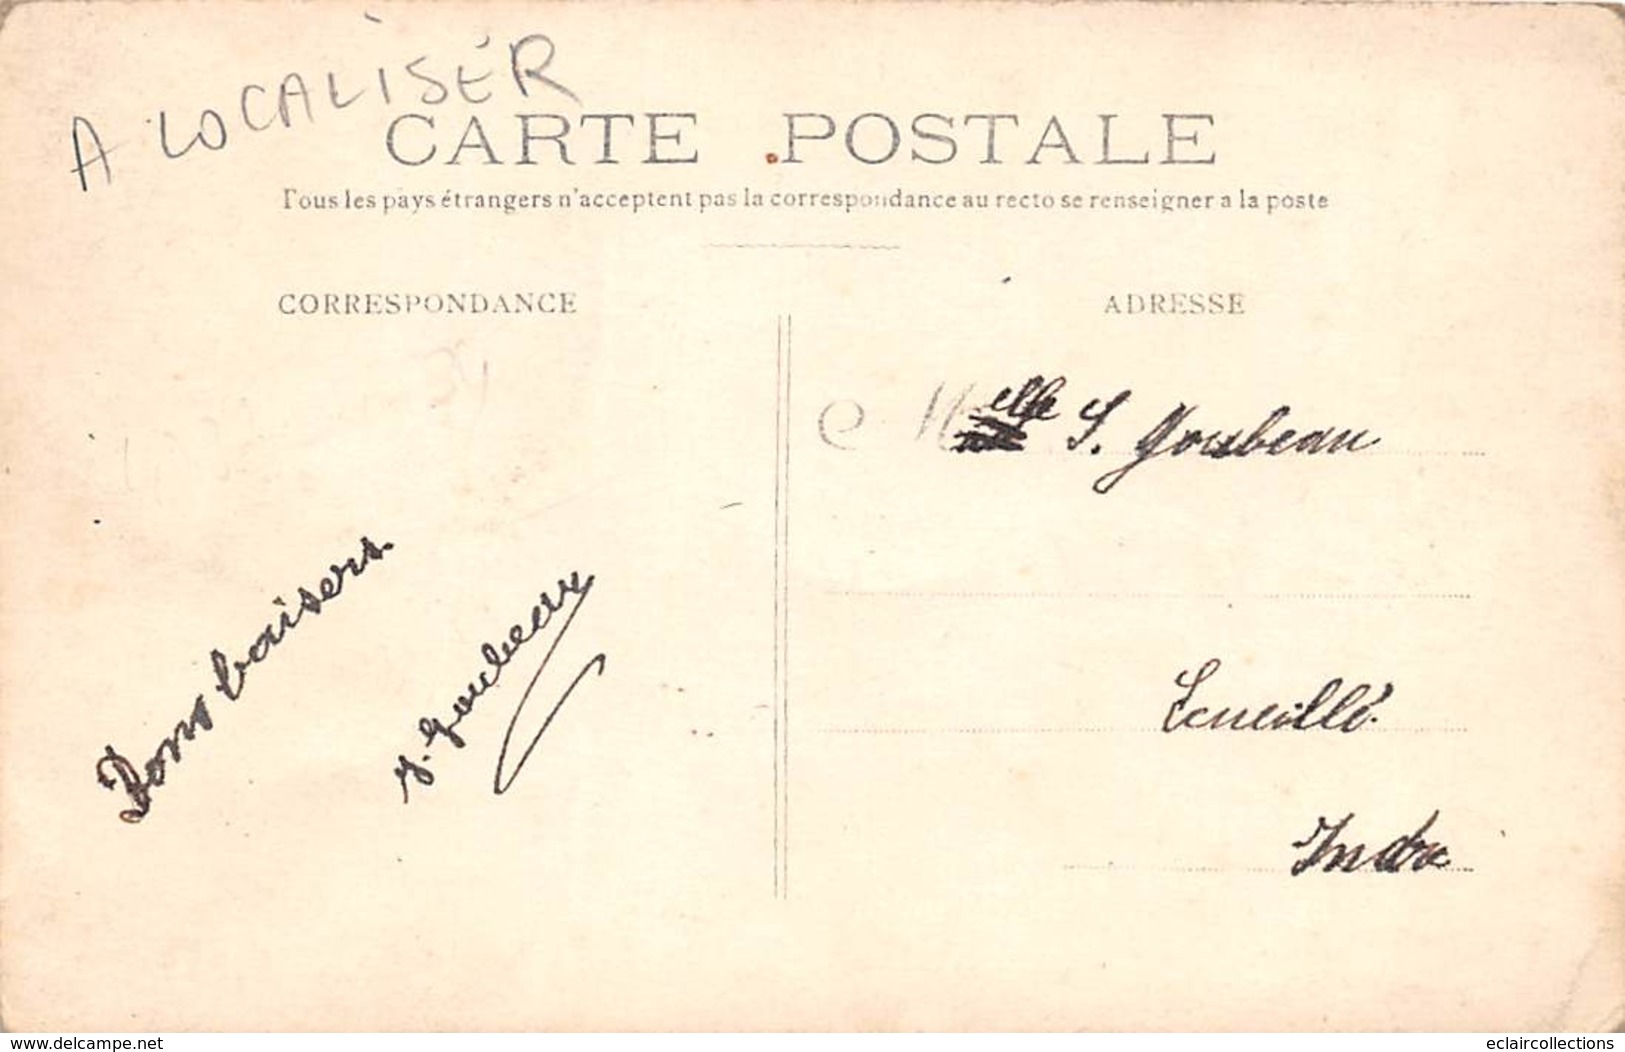 A LOCALISER
CARTE POSTALE
Tous les pays étrangers n'acceptent pas la correspondance au recto se renseigner a la poste
CORRESPONDANCE
ADRESSE
Melle S. Goubeau
Bons baisers
J. Goubeau
Ecueillé.
Indre
www.delcampe.net
eclaircollections